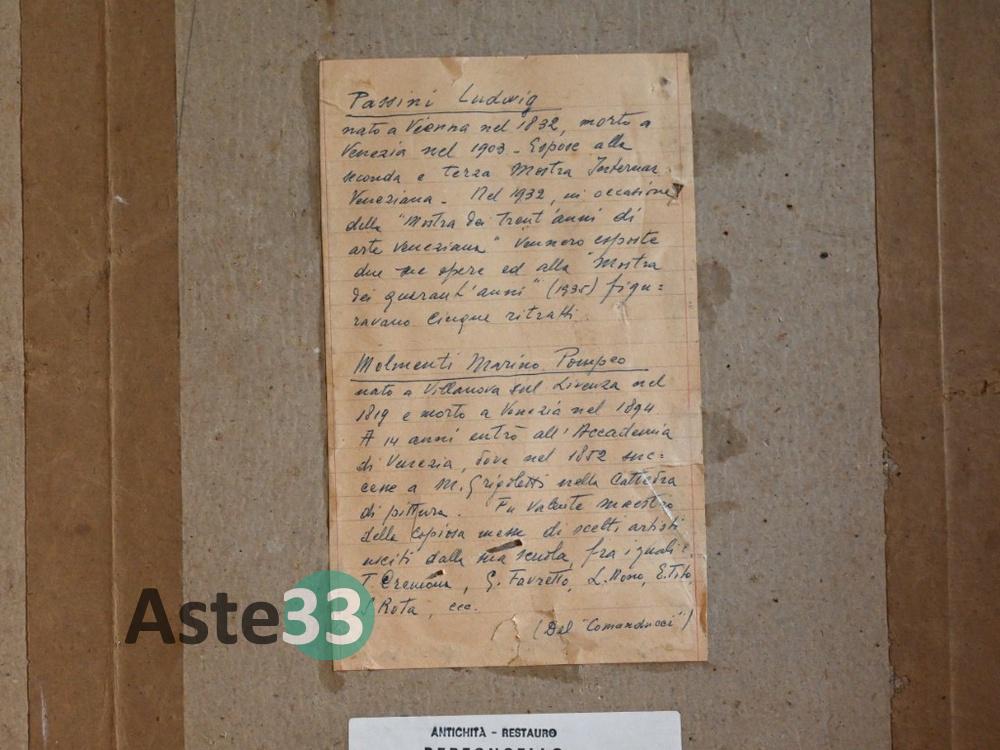 Passini Ludwig
nato a Vienna nel 1832, morto a
Venezia nel 1903 - Espose alla
seconda e terza Mostra Internaz.
Veneziana - Nel 1932, in occasione
della "Mostra dei trent'anni di
arte veneziana" vennero esposte
due sue opere ed alla "Mostra
dei quarant'anni" (1935) figu=
ravano cinque ritratti.
Molmenti Marino Pompeo
nato a Villanova sul Livenza nel
1819 e morto a Venezia nel 1894
A 14 anni entrò all'Accademia
di Venezia, dove nel 1852 suc=
cesse a M. Grigoletti nella Cattedra
di pittura. Fu valente maestro
della copiosa messe di scelti artisti
usciti dalla sua scuola, fra i quali:
T. Cremona, G. Favretto, L. Nono, E. Tito,
Rota, ecc.
(Dal "Comanducci")
Aste33
ANTICHITÀ - RESTAURO